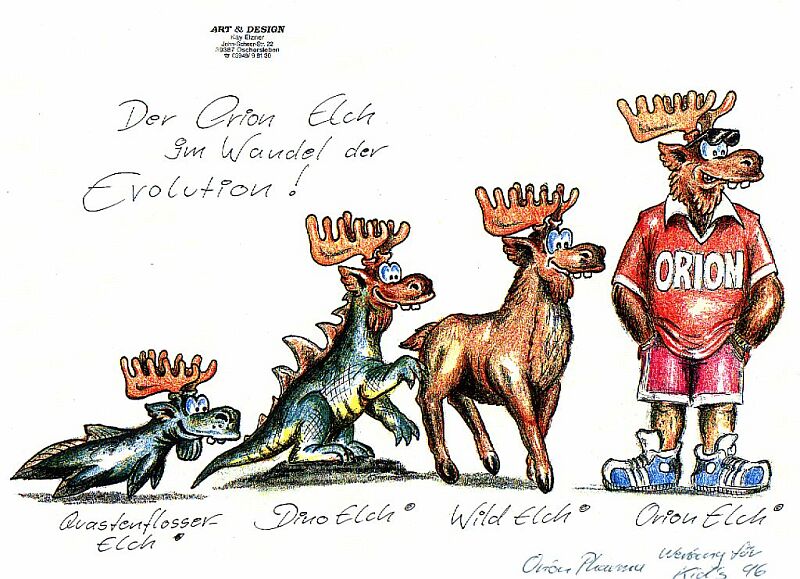 ART & DESIGN
Kay Elzner
John-Scheer-Str. 22
39387 Oschersleben
☎ 03949/9 81 30
Der Orion Elch
im Wandel der
Evolution!
ORION
Quastenflosser-
Elch
Dino Elch ©
Wild Elch ©
Orion Elch ©
Orion Pharma Werbung für
Kid's 96